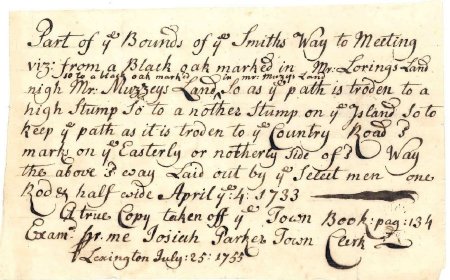 Part of yᵉ Bounds of yᵉ Smiths Way to Meeting
viz: from a Black oak marked in Mr. Lorings Land
so to a black oak markd in mr: Muzzeys Land
nigh Mr. Muzzeys Land, So as yᵉ path is troden to a
high Stump So to a nother Stump on yᵉ Island So to
keep yᵉ path as it is troden to yᵉ Country Road 3
marks on yᵉ Easterly or notherly side of 3 Way
the above 3 way Laid out by yᵉ Select men one
Rod & half wide April yᵉ: 4: 1733
A true Copy taken off yᵉ Town Book: pag: 134
Exam: pr. me Josiah Parker Town Clerk
Lexington July: 25: 1755